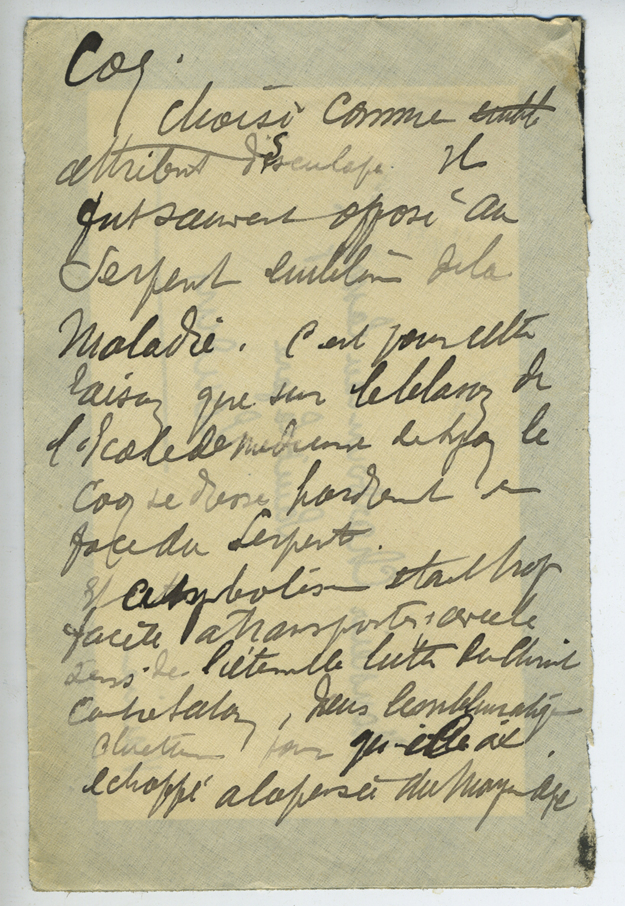 Coq.
choisi comme
attribut d'Esculape. Il
fut souvent opposé au
Serpent emblème de la
Maladie. C'est pour cette
raison que sur le blason de
l'Ecole de Medecine de Lyon le
Coq se dresse hardiment en
face du Serpent.
Et ce symbolisme etait trop
facile a transporter avec le
sens de l'éternelle lutte du Christ
contre Satan, dans l'emblematique
chretienne pour qu'elle ait
echappé a la pensée du Moyen age